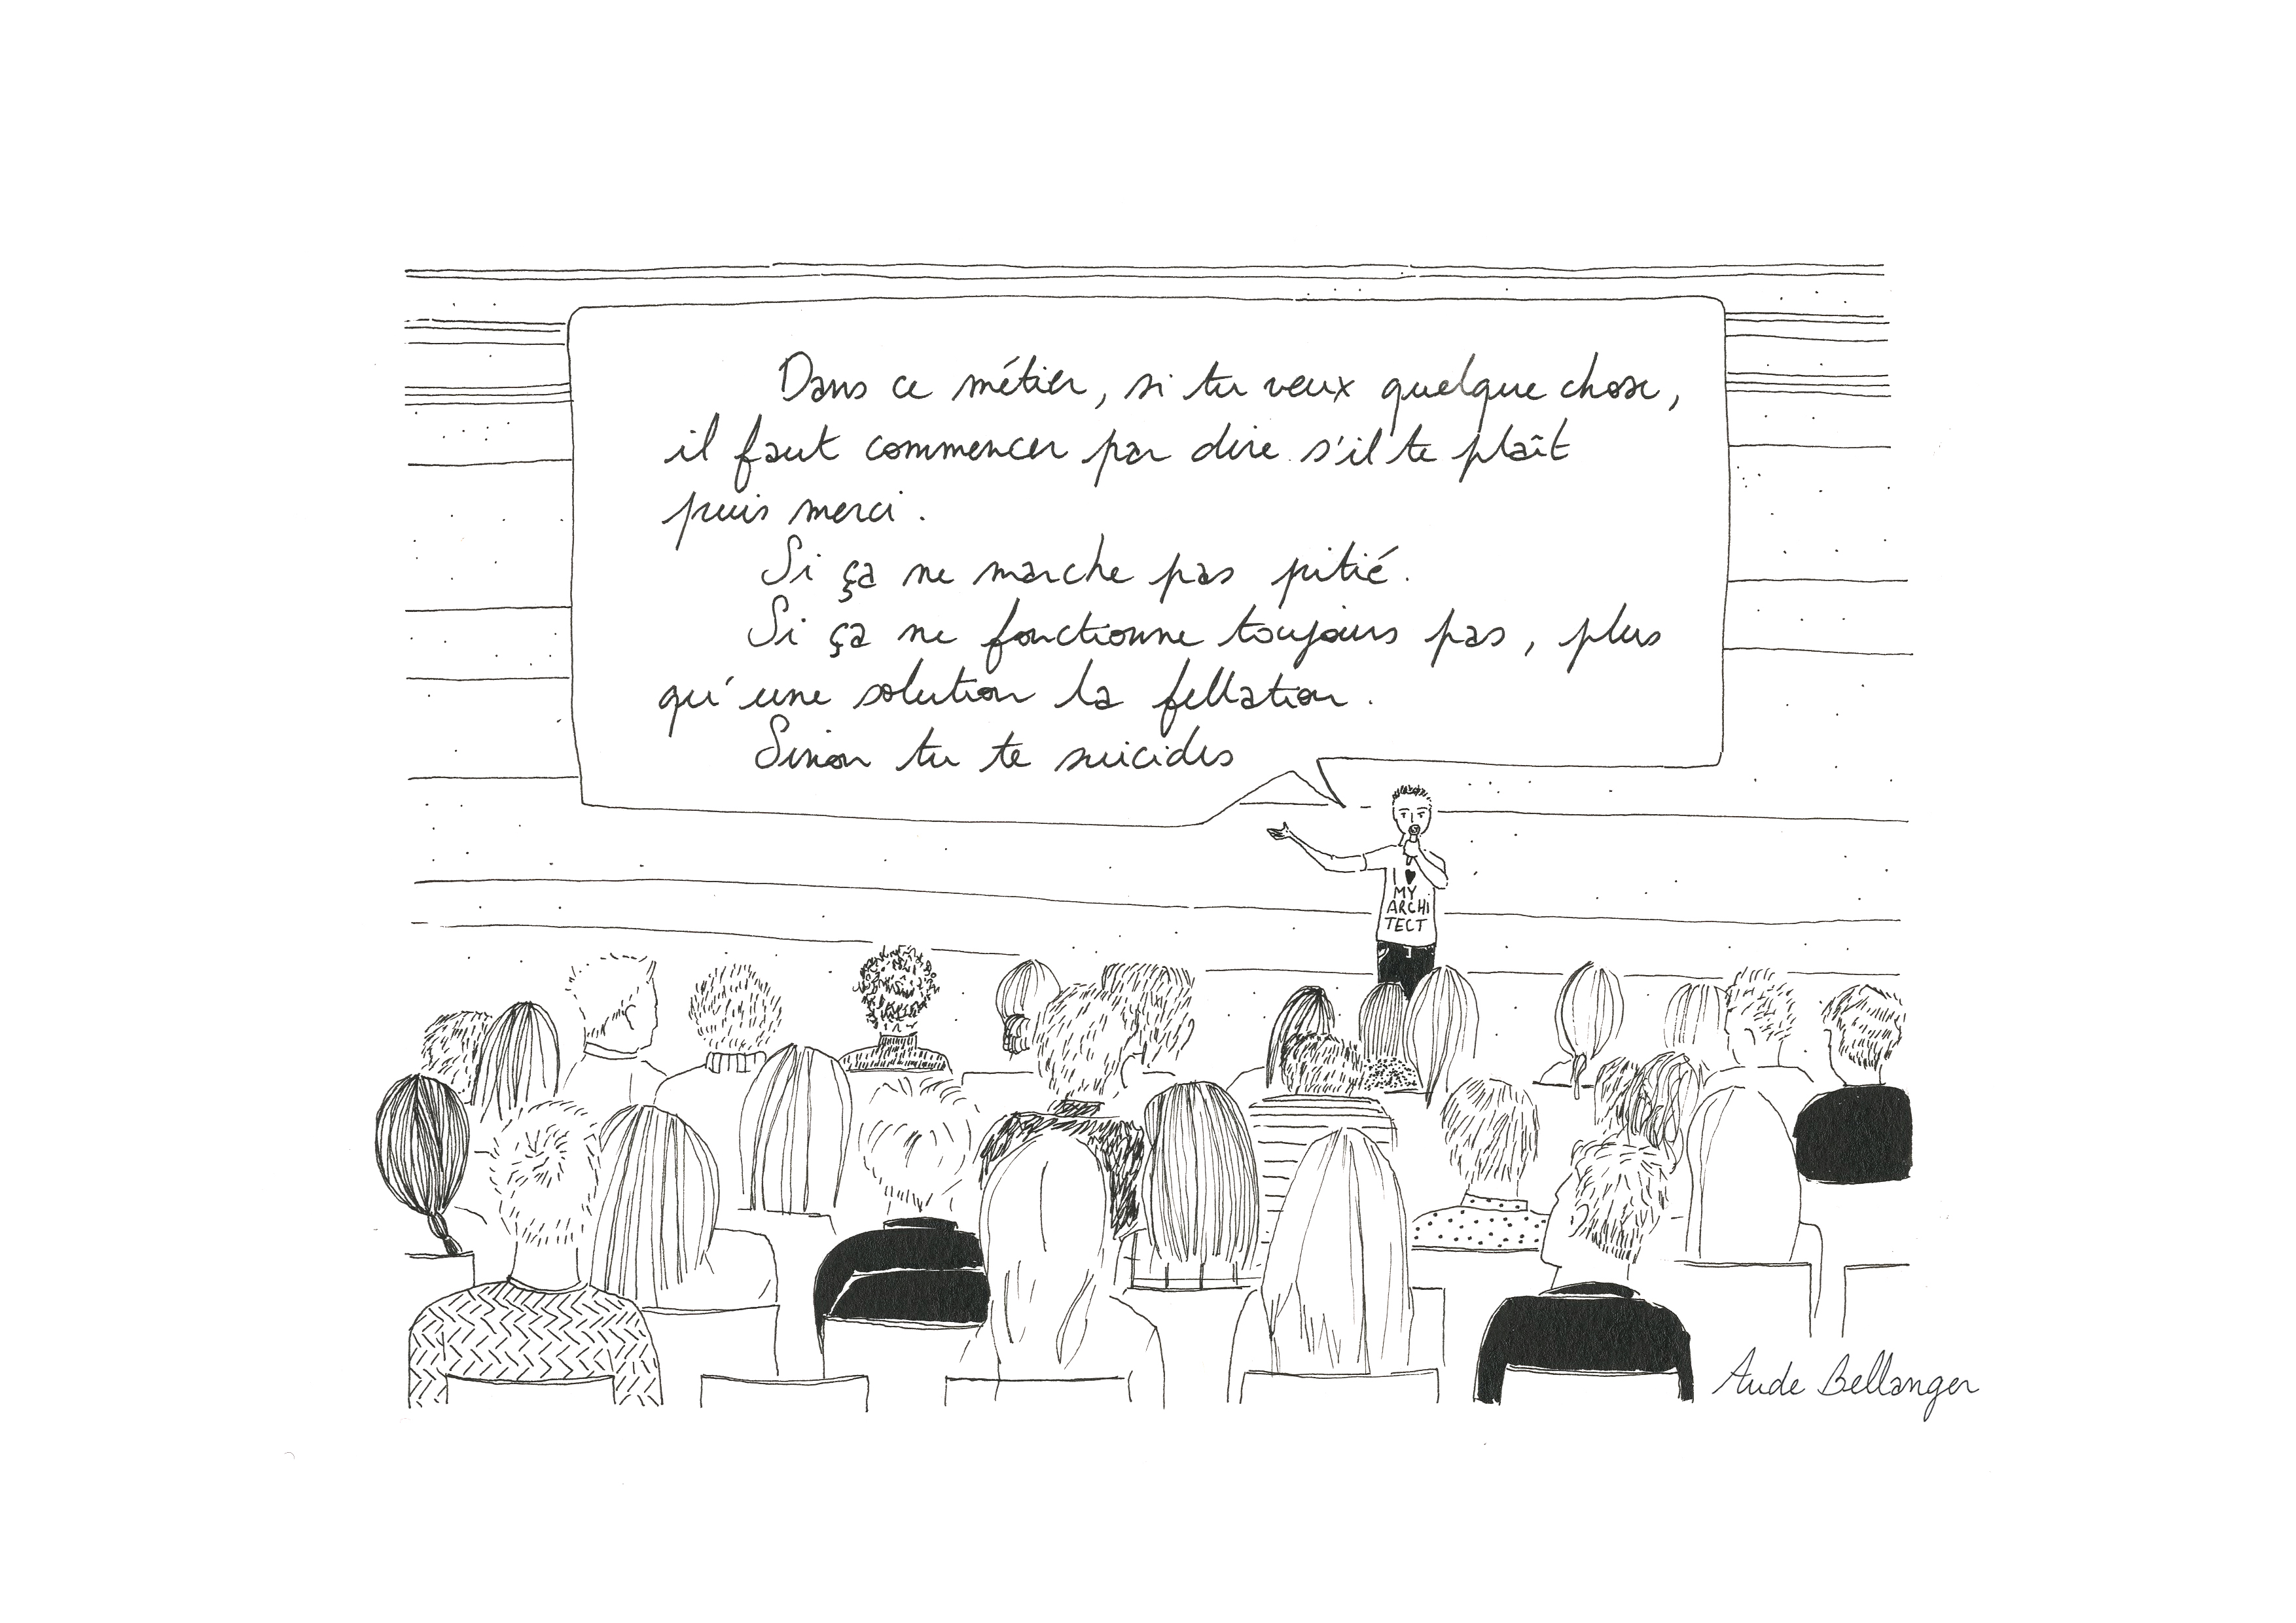 Dans ce métier, si tu veux quelque chose,
il faut commencer par dire s'il te plaît
puis merci.
Si ça ne marche pas pitié.
Si ça ne fonctionne toujours pas, plus
qu'une solution la fellation.
Sinon tu te suicides
I ♥
MY
ARCHI
TECT
Aude Bellanger